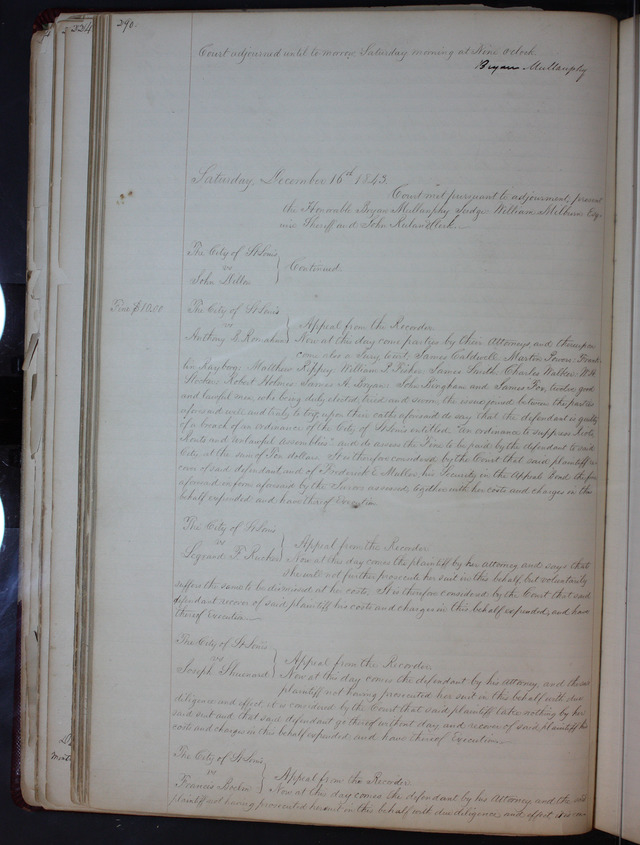 224
290.
Court adjourned until to morrow Saturday morning at Nine oclock
Bryan Mullanphy
Saturday, December 16th 1843.
Court met pursuant to adjournment, present
the Honorable Bryan Mullanphy Judge, William Milburn Esq-
uire Sheriff and John Ruland Clerk
The City of St Louis
vs
John Dillon
Continued
Fine $10.00
The City of St Louis
vs
Anthony G.
Appeal from the Recorder
Now at this day come parties by their Attorneys and thereupon
come also a Jury towit, James Caldwell Martin Powers Frank
lin Rayborg Matthew Rippey William P. Fisher James Smith Charles W. H.
Robert Holmes James H. Bryan John Bingham and James Fox, twelve good
and lawful men, who being duly elected, tried and sworn the issue joined between the parties
aforesaid well and truly to try, upon their oath aforesaid do say that the defendant is guilty
of a breach of an ordinance of the City of St Louis entitled "An ordinance to suppress Riots,
Routs and unlawful assemblies" and do assess the Fine to be paid by the defendant to said
City at the sum of Ten dollars It is therefore considered by the Court that said plaintiff re-
cover of said defendant and of Frederick L. his Security in the Appeal Bond the fine
aforesaid in form aforesaid by the Jurors assessed, together with her costs and charges in this
behalf expended and have thereof Execution
The City of St Louis
vs
Legrand F.
Appeal from the Recorder
Now at this day comes the plaintiff by her attorney and says that
she will not further prosecute her suit in this behalf, but voluntarily
suffers the same to be dismissed at her costs. It is therefore considered by the Court that said
defendant recover of said plaintiff his costs and charges in this behalf expended, and have
thereof Execution
The City of St Louis
vs
Joseph
Appeal from the Recorder
Now at this day comes the defendant by his Attorney, and the said
plaintiff not having prosecuted her suit in this behalf with due
diligence and effect, it is considered by the Court that said plaintiff take nothing by her
said suit and that said defendant go thereof without day and recover of said plaintiff his
costs and charges in this behalf expended and have thereof Execution
The City of St Louis
vs
Francis
Appeal from the Recorder
Now at this day comes the defendant by his Attorney and the said
plaintiff not having prosecuted her suit in this behalf with due diligence, and effect, it is con